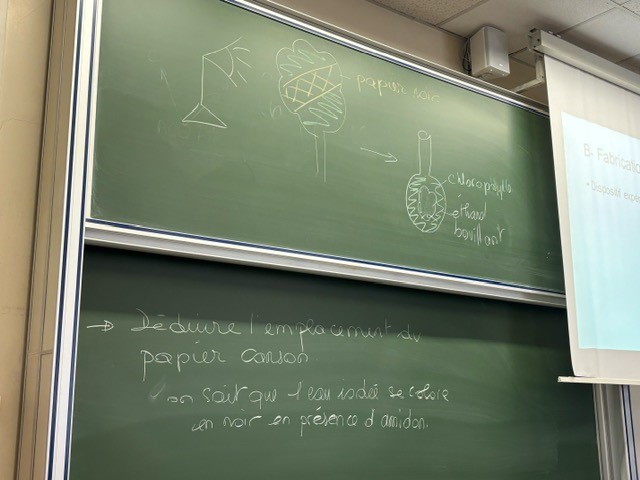 papier noir
chlorophylle
éthanol
bouillant
→ Déduire l'emplacement du
papier canson
on sait que l'eau iodée se colore
en noir en présence d'amidon.
B- Fabricatio
• Dispositif expé